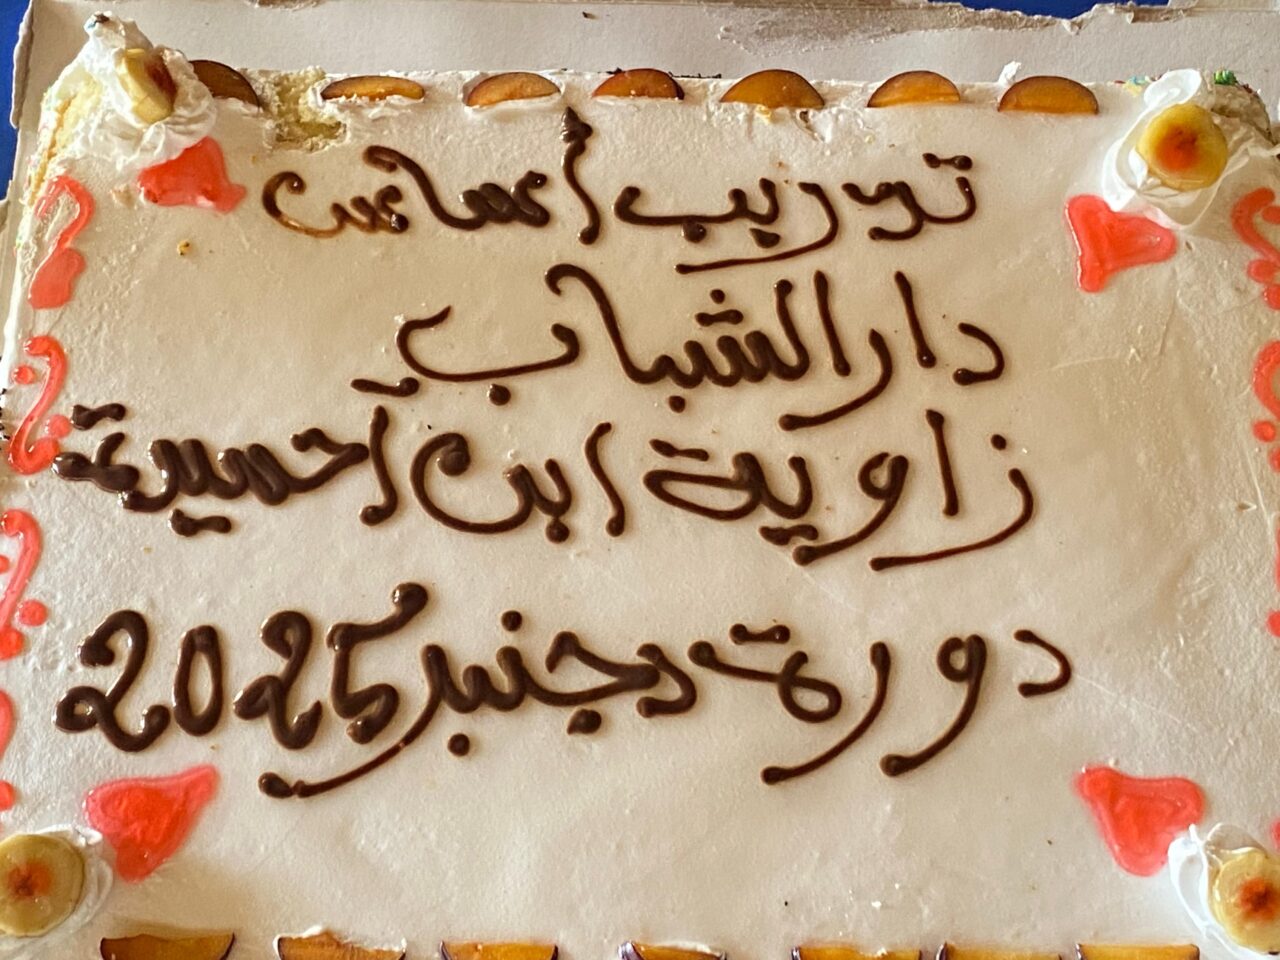 تدريب أساس
دار الشباب
زاوية ابن احسيرة
دورة دجنبر 2025